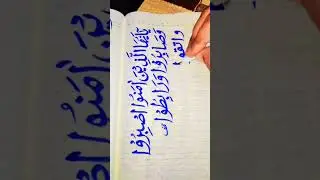 يٰٓاَيُّهَا الَّذِيْنَ اٰمَنُوا اصْبِرُوْا
وَصَابِرُوْا وَرَابِطُوْا
وَاتَّقُوا